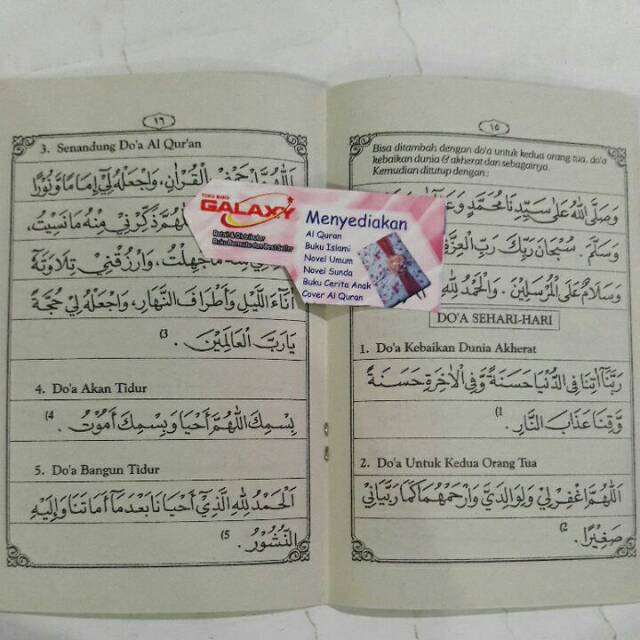 ١٥
Bisa ditambah dengan do'a untuk kedua orang tua, do'a
kebaikan dunia & akherat dan sebagainya.
Kemudian ditutup dengan:
وَصَلَّى اللهُ عَلَى سَيِّدِنَا مُحَمَّدٍ
وَسَلَّمَ . سُبْحَانَ رَبِّكَ رَبِّ
وَسَلَامٌ عَلَى الْمُرْسَلِيْنَ . وَالْحَمْدُ لِلّٰهِ
DO'A SEHARI-HARI
1. Do'a Kebaikan Dunia Akherat
رَبَّنَا اٰتِنَا فِي الدُّنْيَا حَسَنَةً وَّفِي الْاٰخِرَةِ حَسَنَةً
وَّقِنَا عَذَابَ النَّارِ . (1
2. Do'a Untuk Kedua Orang Tua
اَللّٰهُمَّ اغْفِرْلِيْ وَلِوَالِدَيَّ وَارْحَمْهُمَا كَمَا رَبَّيَانِيْ
صَغِيْرًا . (2
١٦
3. Senandung Do'a Al Qur'an
اَللّٰهُمَّ ارْحَمْنِيْ بِالْقُرْاٰنِ، وَاجْعَلْهُ لِيْ اِمَامًا وَّنُوْرًا
ذَكِّرْنِيْ مِنْهُ مَا نَسِيْتُ،
مَا جَهِلْتُ، وَارْزُقْنِيْ تِلَاوَتَهُ
اٰنَاءَ اللَّيْلِ وَأَطْرَافَ النَّهَارِ، وَاجْعَلْهُ لِيْ حُجَّةً
يَارَبَّ الْعَالَمِيْنَ . (3
4. Do'a Akan Tidur
بِسْمِكَ اللّٰهُمَّ أَحْيَا وَبِسْمِكَ أَمُوْتُ . (4
5. Do'a Bangun Tidur
اَلْحَمْدُ لِلّٰهِ الَّذِيْ أَحْيَانَا بَعْدَمَا أَمَاتَنَا وَإِلَيْهِ
النُّشُوْرُ . (5
TOKO BUKU
GALAXY
Retail & Distributor
Buku Bermutu dan Best Seller
Menyediakan
Al Quran
Buku Islami
Novel Umum
Novel Sunda
Buku Cerita Anak
Cover Al Quran